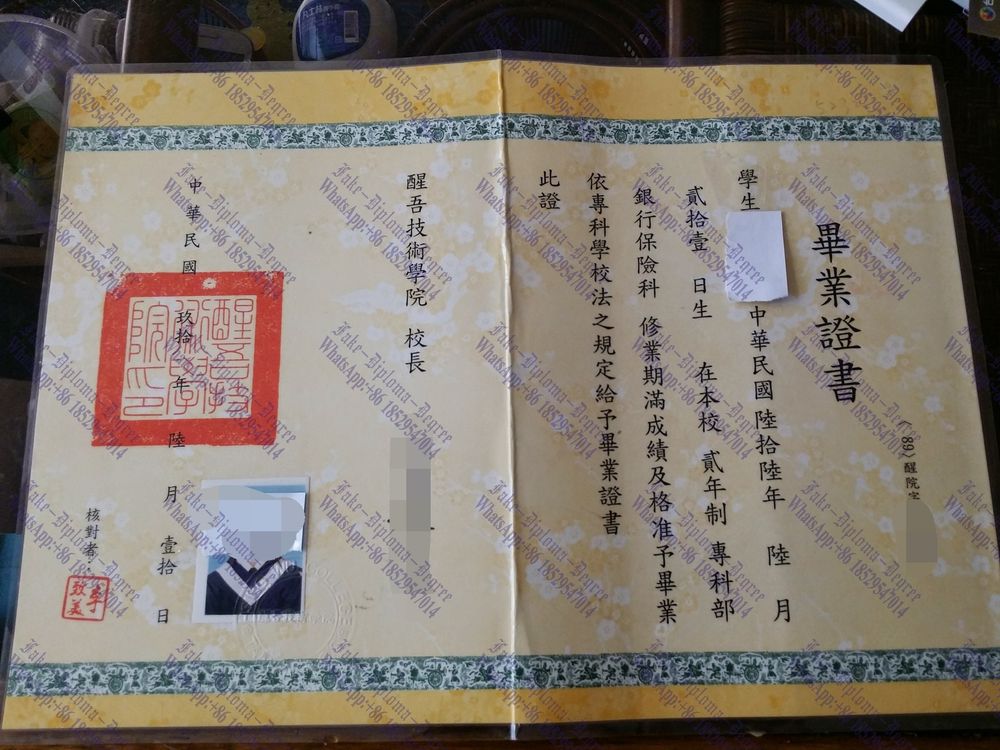 畢業證書
(89)醒院字
學生
中華民國陸拾陸年 陸 月
貳拾壹 日生 在本校 貳年制 專科部
銀行保險科 修業期滿成績及格准予畢業
依專科學校法之規定給予畢業證書
此證
醒吾技術學院 校長
中華民國 玖拾 年 陸 月 壹拾 日
核對者：
李致美
Fake-Diploma-Degree
WhatsApp:+86 18529547014